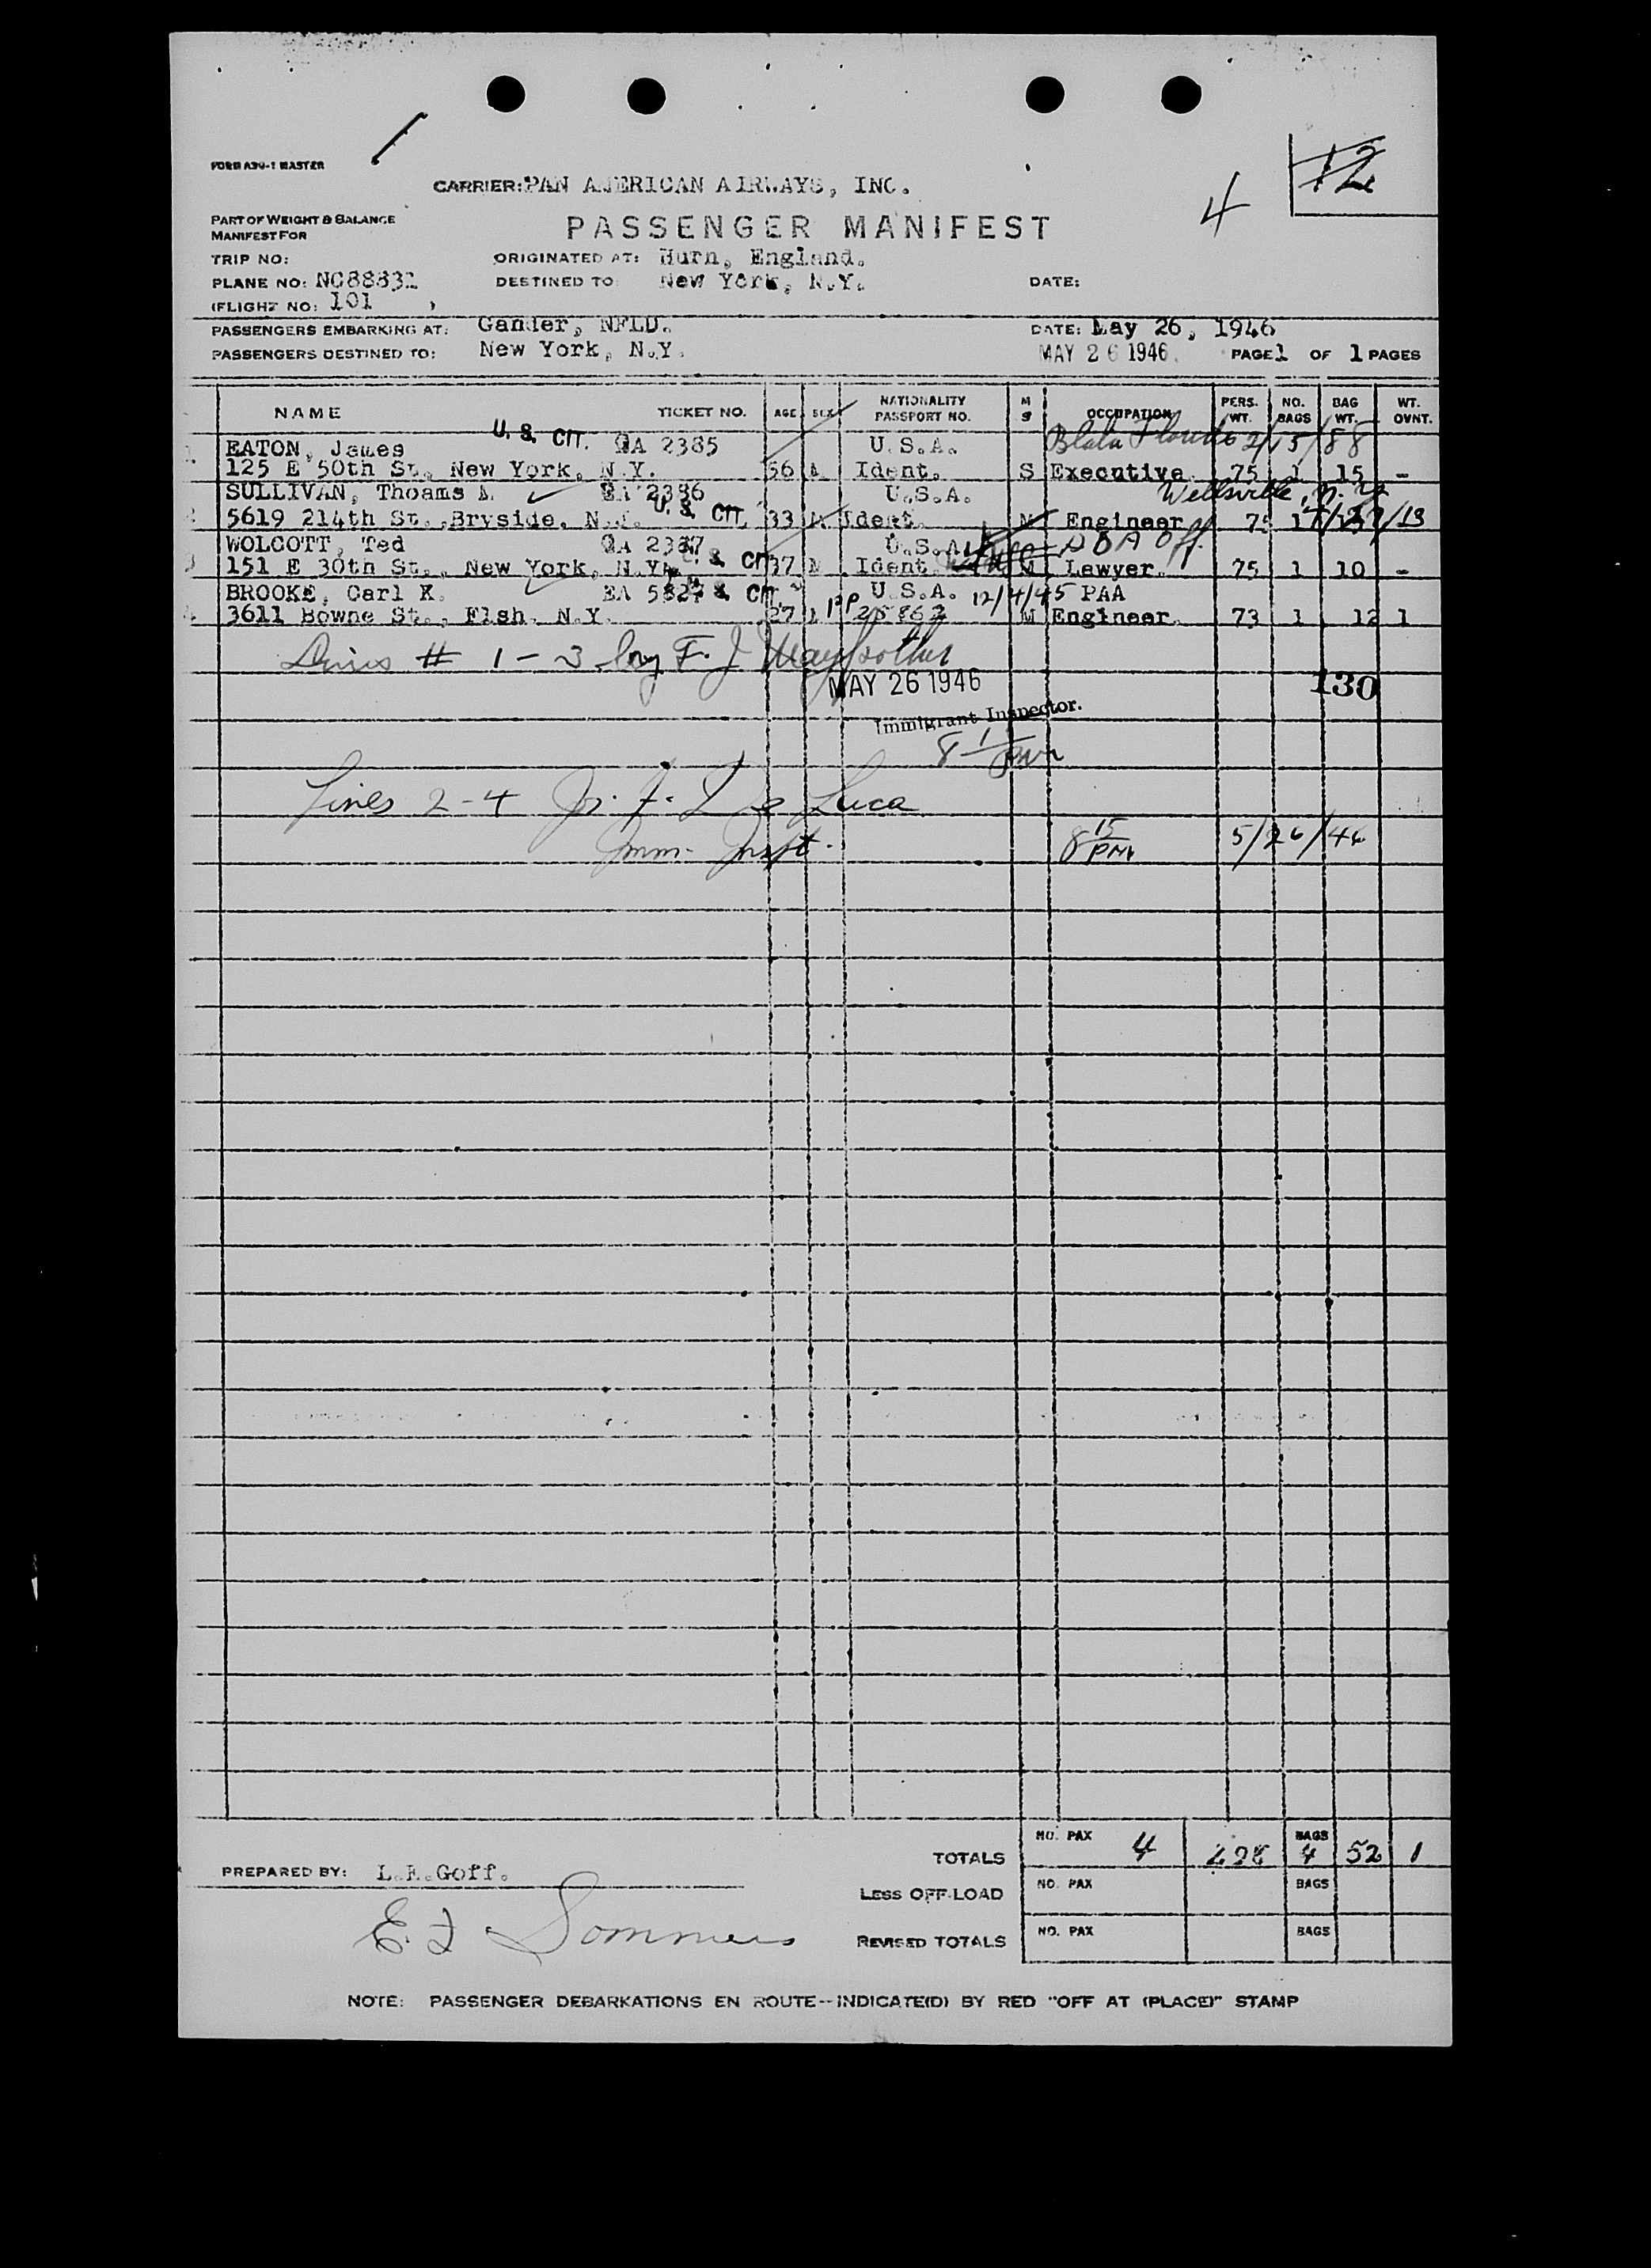 FORM A30-1 MASTER
12
CARRIER: PAN AMERICAN AIRWAYS, INC.
4
PART OF WEIGHT & BALANCE
MANIFEST FOR
PASSENGER MANIFEST
TRIP NO:
ORIGINATED AT: Hurn, England.
PLANE NO: NC88831
DESTINED TO: New York, N.Y.
DATE:
(FLIGHT NO: 101 )
PASSENGERS EMBARKING AT: Gander, NFLD.
DATE: May 26, 1946
PASSENGERS DESTINED TO: New York, N.Y.
MAY 26 1946 PAGE 1 OF 1 PAGES
NAME TICKET NO. AGE SEX NATIONALITY PASSPORT NO. M S OCCUPATION PERS. WT. NO. BAGS BAG WT. WT. OVNT.
EATON, James U. S. CIT. QA 2385 U.S.A. 2/15/88
125 E 50th St., New York, N.Y. 56 M Ident. S Executive 75 1 15 -
SULLIVAN, Thoams EA 2386 U.S.A. Wellsville, N.Y.
5619 214th St., Bryside, N.Y. U. S. CIT. 33 M Ident. M Engineer 75 1
WOLCOTT, Ted QA 2387 U.S.A.
151 E 30th St., New York, N.Y. U. S. CIT 37 M Ident. M Lawyer. 75 1 10 -
BROOKE, Carl K. EA 5827 U. S. CIT. U.S.A. 12/4/45 PAA
3611 Bowne St., Flsh. N.Y. 27 M PP 25862 M Engineer. 73 1 12 1
# 1-3 by F. J.
MAY 26 1946
130
Immigrant Inspector.
8
Lines 2-4 De Luca
Imm. Inspt. 8 15 PM 5/26/46
TOTALS NO. PAX 4 298 BAGS 4 52 1
PREPARED BY: L.E.Goff.
LESS OFF-LOAD NO. PAX BAGS
E. J. Sommers
REVISED TOTALS NO. PAX BAGS
NOTE: PASSENGER DEBARKATIONS EN ROUTE--INDICATE(D) BY RED "OFF AT (PLACE)" STAMP